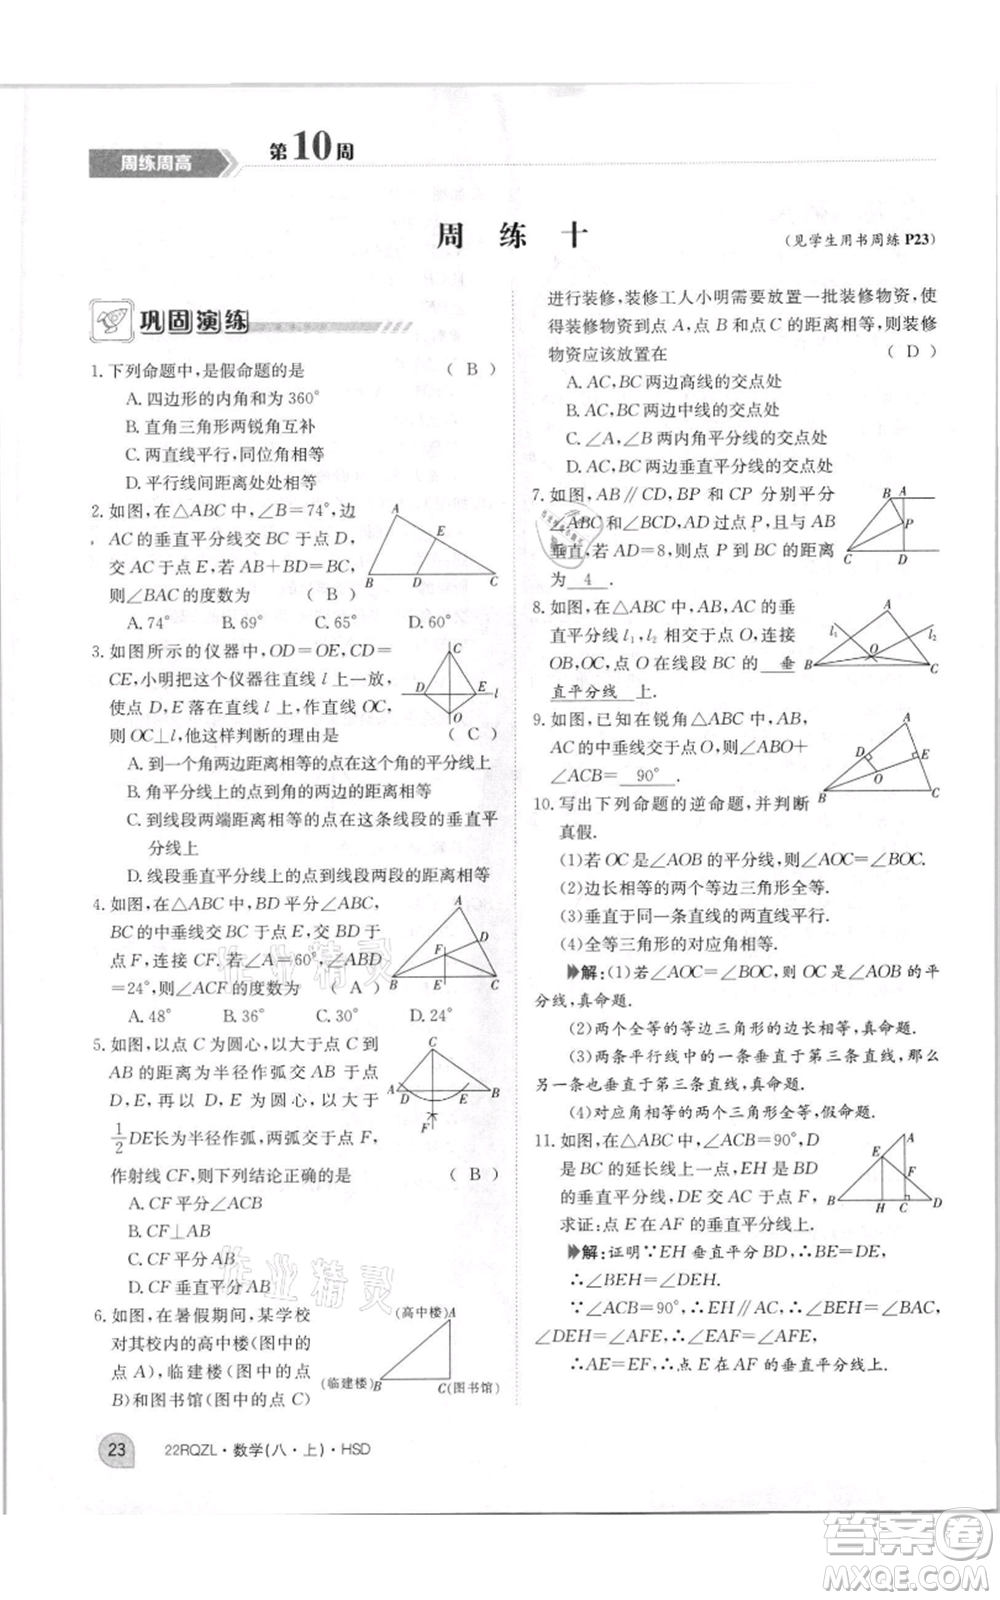 周练周高
第10周
周 练 十
(见学生用书周练P23)
巩固演练
1. 下列命题中,是假命题的是 ( B )
A. 四边形的内角和为360°
B. 直角三角形两锐角互补
C. 两直线平行,同位角相等
D. 平行线间距离处处相等
2. 如图,在△ABC中,∠B=74°,边
AC的垂直平分线交BC于点D,
交AC于点E,若AB+BD=BC,
则∠BAC的度数为 ( B )
A. 74° B. 69° C. 65° D. 60°
A
E
B D C
3. 如图所示的仪器中,OD=OE,CD=
CE,小明把这个仪器往直线l上一放,
使点D,E落在直线l上,作直线OC,
则OC⊥l,他这样判断的理由是 ( C )
A. 到一个角两边距离相等的点在这个角的平分线上
B. 角平分线上的点到角的两边的距离相等
C. 到线段两端距离相等的点在这条线段的垂直平
分线上
D. 线段垂直平分线上的点到线段两段的距离相等
C
D E l
O
4. 如图,在△ABC中,BD平分∠ABC,
BC的中垂线交BC于点E,交BD于
点F,连接CF.若∠A=60°,∠ABD
=24°,则∠ACF的度数为 ( A )
A. 48° B. 36° C. 30° D. 24°
A
D
F
B E C
5. 如图,以点C为圆心,以大于点C到
AB的距离为半径作弧,交AB于点
D,E,再以D,E为圆心,以大于
1/2 DE长为半径作弧,两弧交于点F,
作射线CF,则下列结论正确的是 ( B )
A. CF平分∠ACB
B. CF⊥AB
C. CF平分AB
D. CF垂直平分AB
C
A D E B
F
6. 如图,在暑假期间,某学校
对其校内的高中楼(图中的
点A),临建楼(图中的点
B)和图书馆(图中的点C)
(高中楼)A
(临建楼)B
C(图书馆)
进行装修,装修工人小明需要放置一批装修物资,使
得装修物资到点A,点B和点C的距离相等,则装修
物资应该放置在 ( D )
A. AC,BC两边高线的交点处
B. AC,BC两边中线的交点处
C. ∠A,∠B两内角平分线的交点处
D. AC,BC两边垂直平分线的交点处
7. 如图,AB∥CD,BP和CP分别平分
∠ABC和∠BCD,AD过点P,且与AB
垂直,若AD=8,则点P到BC的距离
为 4 .
B A
P
C D
8. 如图,在△ABC中,AB,AC的垂
直平分线l₁,l₂相交于点O,连接
OB,OC,则点O在线段BC的 垂
直平分线 上.
A
l₁ l₂
O
B C
9. 如图,已知在锐角△ABC中,AB,
AC的中垂线交于点O,则∠ABO+
∠ACB= 90° .
A
D E
O
B C
10. 写出下列命题的逆命题,并判断
真假.
(1)若OC是∠AOB的平分线,则∠AOC=∠BOC.
(2)边长相等的两个等边三角形全等.
(3)垂直于同一条直线的两直线平行.
(4)全等三角形的对应角相等.
解:(1)若∠AOC=∠BOC,则OC是∠AOB的平
分线,真命题.
(2)两个全等的等边三角形的边长相等,真命题.
(3)两条平行线中的一条垂直于第三条直线,那么
另一条也垂直于第三条直线,真命题.
(4)对应角相等的两个三角形全等,假命题.
11. 如图,在△ABC中,∠ACB=90°,D
是BC的延长线上一点,EH是BD
的垂直平分线,交AC于点F,
求证:点E在AF的垂直平分线上.
A
E
F
B H C D
解:证明:∵EH垂直平分BD,∴BE=DE,
∴∠BEH=∠DEH.
∵∠ACB=90°,∴EH∥AC,∴∠BEH=∠BAC,
∠DEH=∠AFE,∴∠BAC=∠AFE,
∴AE=EF,∴点E在AF的垂直平分线上.
23
22RQZL·数学(八·上)·HSD
作业精灵
作业精灵
答案卷
MXQE.COM